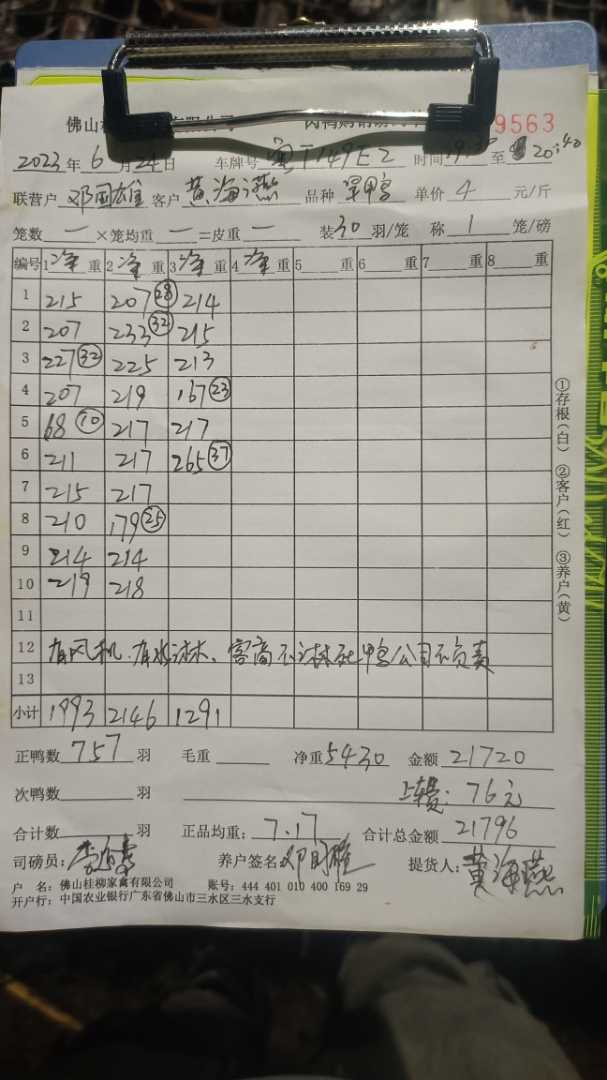 佛山桂 9563
2023年6月24日 车牌号 粤T149E2 时间 至 20:40
联营户 邓国雄 客户 黄海燕 品种 旱鸭 单价 4 元/斤
笼数 一 ×笼均重 一 =皮重 一 装30羽/笼 称 1 笼/磅
编号 1净重 2净重 3净重 4净重 5 重 6 重 7 重 8 重
1 215 207(28) 214
2 207 233(32) 215
3 227(32) 225 213
4 207 219 167(23)
5 68(10) 217 217
6 211 217 265(37)
7 215 217
8 210 179(25)
9 214 214
10 219 218
11
12 有风机.有水淋.客商不淋死鸭公司不负责
13
小计 1993 2146 1291
正鸭数 757 羽 毛重 净重 5430 金额 21720
次鸭数 羽 上车费: 76元
合计数 羽 正品均重: 7.17 合计总金额 21796
司磅员: 养户签名 邓国雄 提货人: 黄海燕
户 名: 佛山桂柳家禽有限公司 账号: 444 401 010 400 169 29
开户行: 中国农业银行广东省佛山市三水区三水支行
①存根(白) ②客户(红) ③养户(黄)